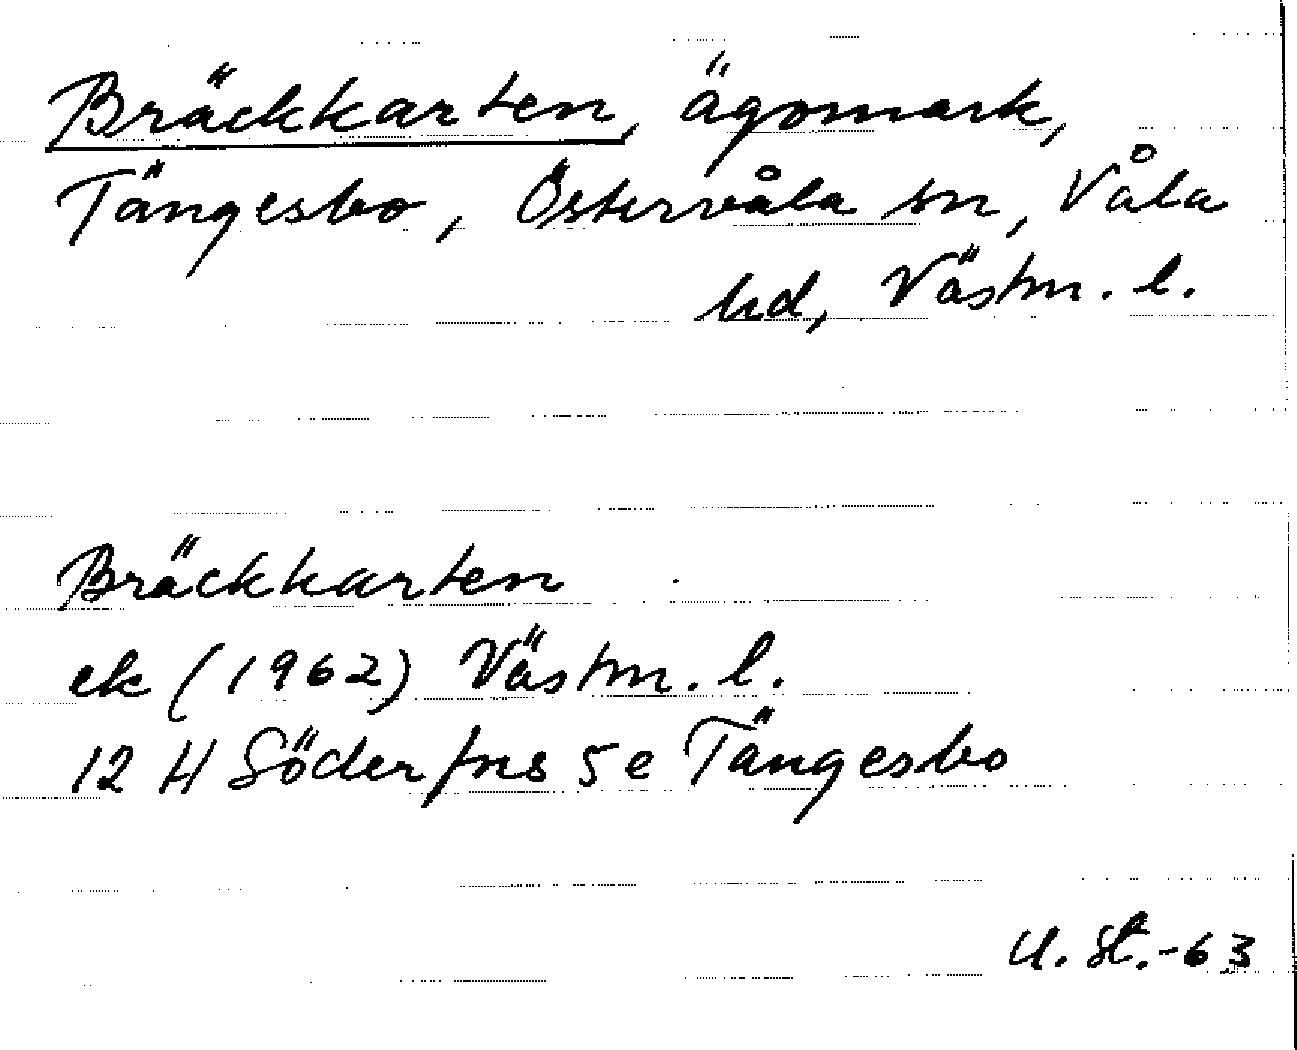 Bräckkarten, ägomark,
Tängesbo, Östervåla sn, Våla
hd, Västm. l.
Bräckkarten
ek (1962) Västm. l.
12 H Söderfors 5 e Tängesbo
U. St. -63